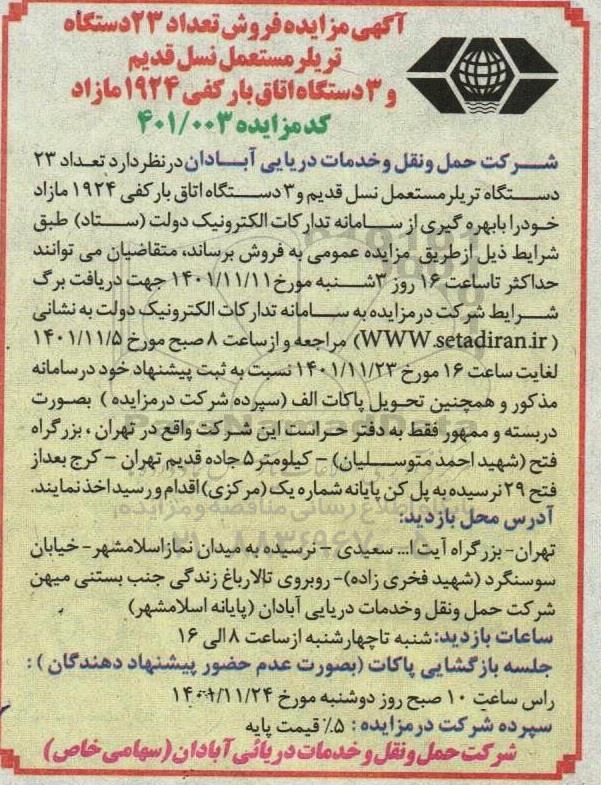 آگهی مزایده فروش تعداد ۲۳ دستگاه
تریلر مستعمل نسل قدیم
و ۳ دستگاه اتاق بار کفی ۱۹۲۴ مازاد
کد مزایده ۴۰۱/۰۰۳
شرکت حمل ونقل وخدمات دریایی آبادان در نظر دارد تعداد ۲۳
دستگاه تریلر مستعمل نسل قدیم و ۳ دستگاه اتاق بار کفی ۱۹۲۴ مازاد
خود را بابهره گیری از سامانه تدارکات الکترونیک دولت (ستاد) طبق
شرایط ذیل از طریق مزایده عمومی به فروش برساند، متقاضیان می توانند
حداکثر تاساعت ۱۶ روز ۳شنبه مورخ ۱۴۰۱/۱۱/۱۱ جهت دریافت برگ
شرایط شرکت در مزایده به سامانه تدارکات الکترونیک دولت به نشانی
(WWW.setadiran.ir) مراجعه و از ساعت ۸ صبح مورخ ۱۴۰۱/۱۱/۵
لغایت ساعت ۱۶ مورخ ۱۴۰۱/۱۱/۲۳ نسبت به ثبت پیشنهاد خود در سامانه
مذکور و همچنین تحویل پاکات الف (سپرده شرکت در مزایده) بصورت
دربسته و ممهور فقط به دفتر حراست این شرکت واقع در تهران ، بزرگراه
فتح (شهید احمد متوسلیان) – کیلومتر ۵ جاده قدیم تهران – کرج بعداز
فتح ۲۹ نرسیده به پل کن پایانه شماره یک (مرکزی) اقدام و رسید اخذ نمایند.
آدرس محل بازدید:
تهران- بزرگراه آیت ا... سعیدی – نرسیده به میدان نماز اسلامشهر- خیابان
سوسنگرد (شهید فخری زاده)- روبروی تالار باغ زندگی جنب بستنی میهن
شرکت حمل ونقل وخدمات دریایی آبادان (پایانه اسلامشهر)
ساعات بازدید: شنبه تا چهارشنبه از ساعت ۸ الی ۱۶
جلسه بازگشایی پاکات (بصورت عدم حضور پیشنهاد دهندگان ) :
راس ساعت ۱۰ صبح روز دوشنبه مورخ ۱۴۰۱/۱۱/۲۴
سپرده شرکت در مزایده : ۵٪ قیمت پایه
شرکت حمل ونقل و خدمات دریائی آبادان (سهامی خاص)